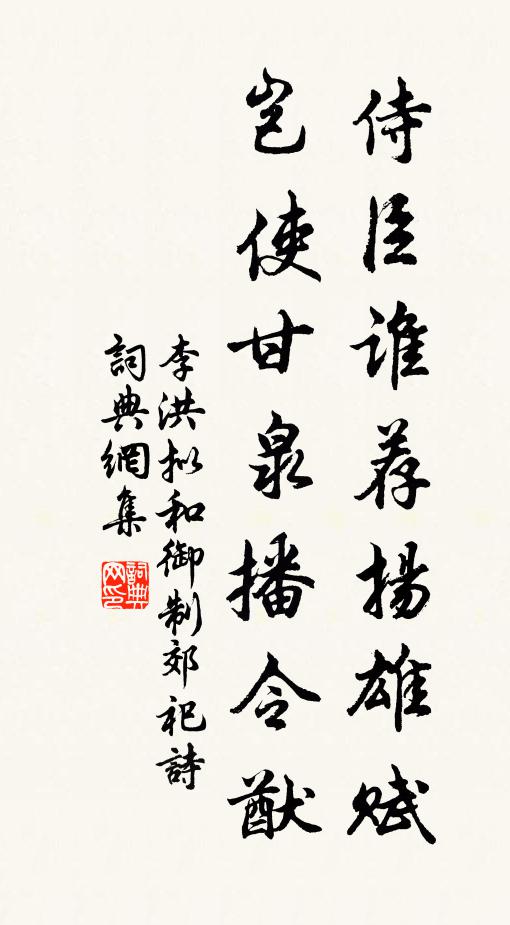 侍臣谁荐揚雄赋
岂使甘泉播令猷
李洪拟和御制郊祀詩
詞典網集
詞典网印